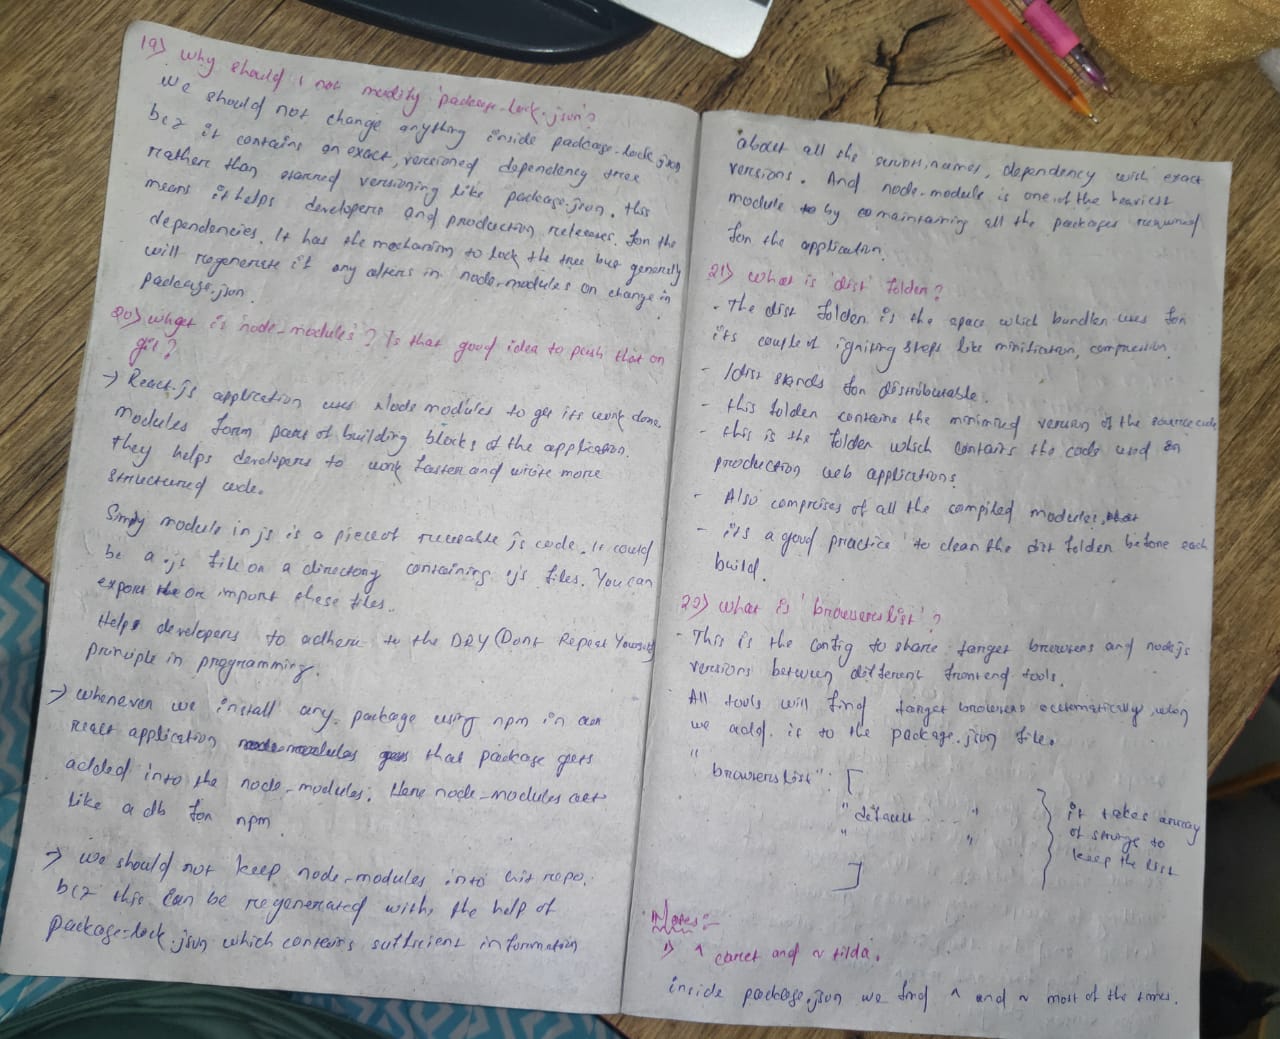 19) Why should I not modify 'package-lock.json'?
We should not change anything inside package-lock.json
bcz it contains an exact, versioned dependency tree
rather than starred versioning like package.json. this
means it helps developers and production releases. for the
dependencies. It has the mechanism to lock the tree but generally
will regenerate if any alters in node-modules on change in
package.json.
20) What is 'node-modules'? Is that good idea to push that on
git?
→ React.js application uses Node modules to get its work done.
modules form part of building blocks of the application.
they helps developers to work faster and write more
structured code.
Simply module in js is a piece of reuseable js code. It could
be a .js file or a directory containing .js files. You can
export or import these files.
Helps developers to adhere to the DRY (Dont Repeat Yourself)
principle in programming.
→ Whenever we install any package using npm in our
react application that package gets
added into the node-modules. Here node-modules act
like a db for npm.
→ We should not keep node-modules into Git repo.
bcz this can be regenerated with the help of
package-lock.json which contains sufficient information
about all the names, dependency with exact
versions. And node-module is one of the heaviest
module by maintaining all the packages required
for the application.
21) What is 'dist' folder?
- The dist folder is the space which bundler uses for
its couple of igniting steps like minification, compression.
- /dist stands for distributable.
- this folder contains the minimized version of the source code
- this is the folder which contains the code used on
production web applications.
- Also comprises of all the compiled modules.
- it's a good practice to clean the dist folder before each
build.
22) What is 'browserslist'?
- This is the config to share target browsers and node.js
versions between different frontend tools.
- All tools will find target browsers automatically, when
we add is to the package.json file.
"browserslist": [
"default .... "
" "
]
it takes array
of strings to
keep the list
Notes:-
1) ^ caret and ~ tilda.
inside package.json we find ^ and ~ most of the times.